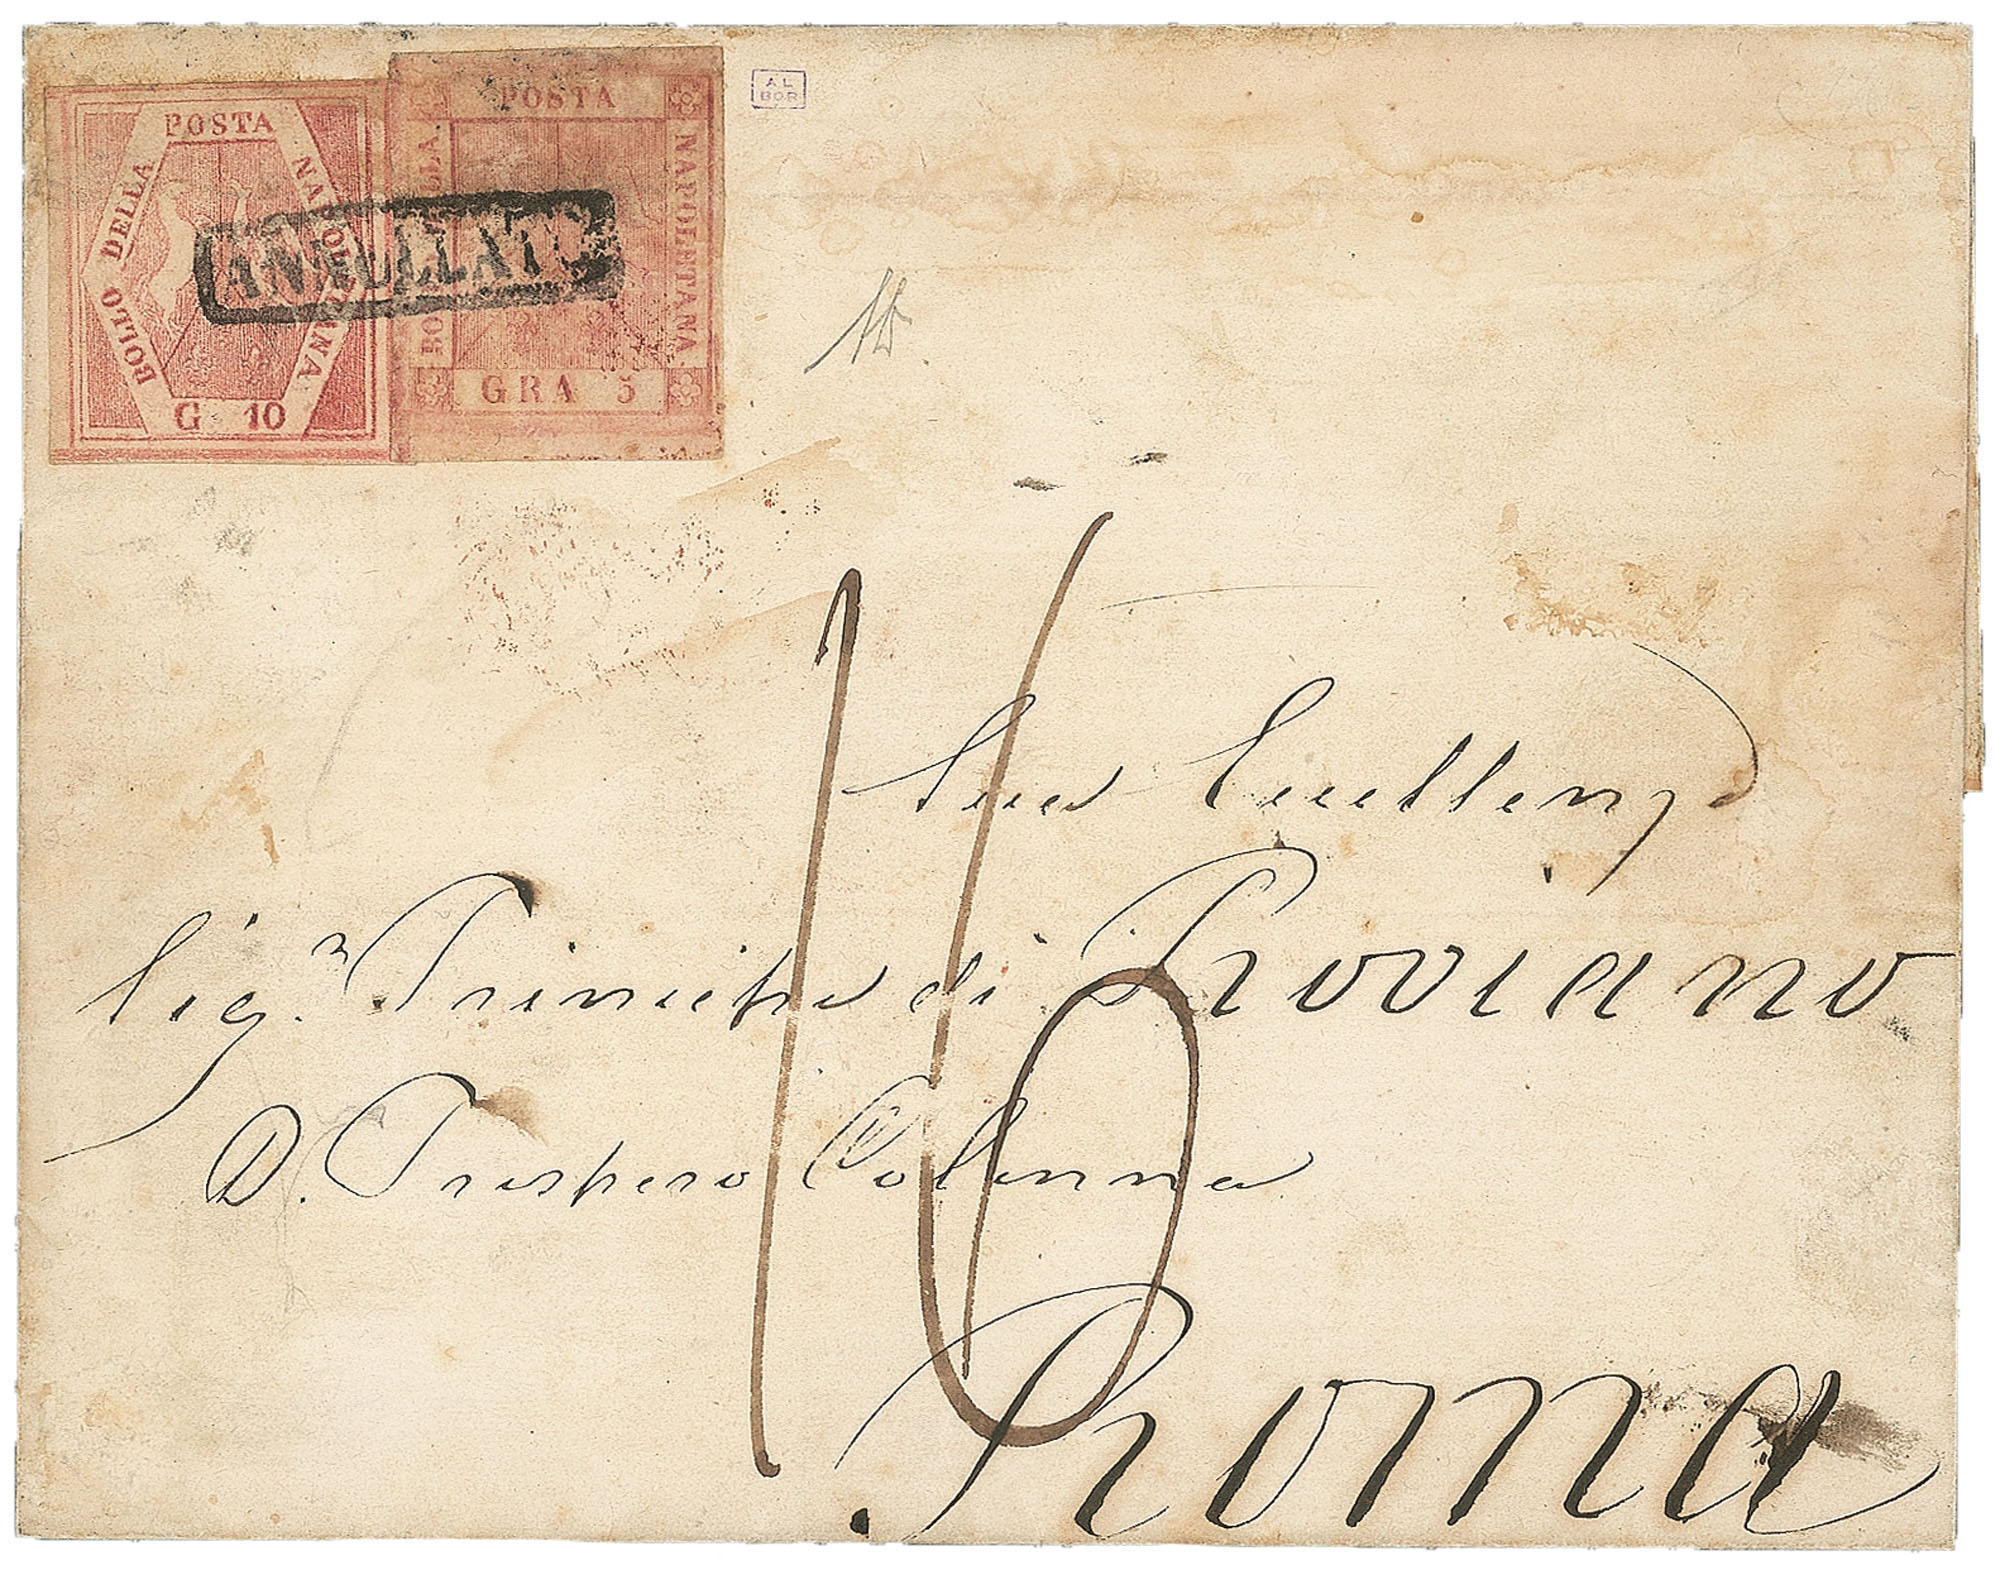 POSTA
BOLLO DELLA
NAPOLETANA
G 10
POSTA
BOLLO DELLA
NAPOLETANA
GRA 5
ANNULLATO
AL
BOR
16
Sua Eccellenza
Sig.r Principe di Roviano
D. Prospero Colonna
Roma